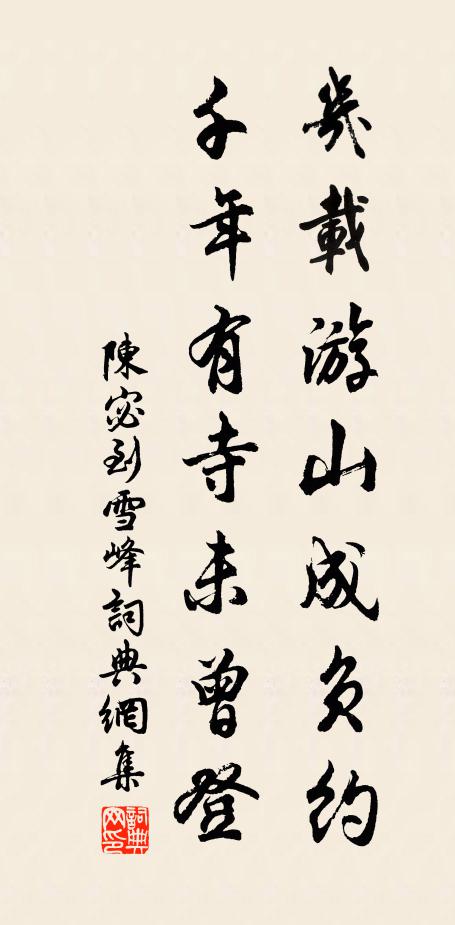 幾載游山成負約
千年有寺未曾登
陳宓到雪峰詞典網集
詞典网印